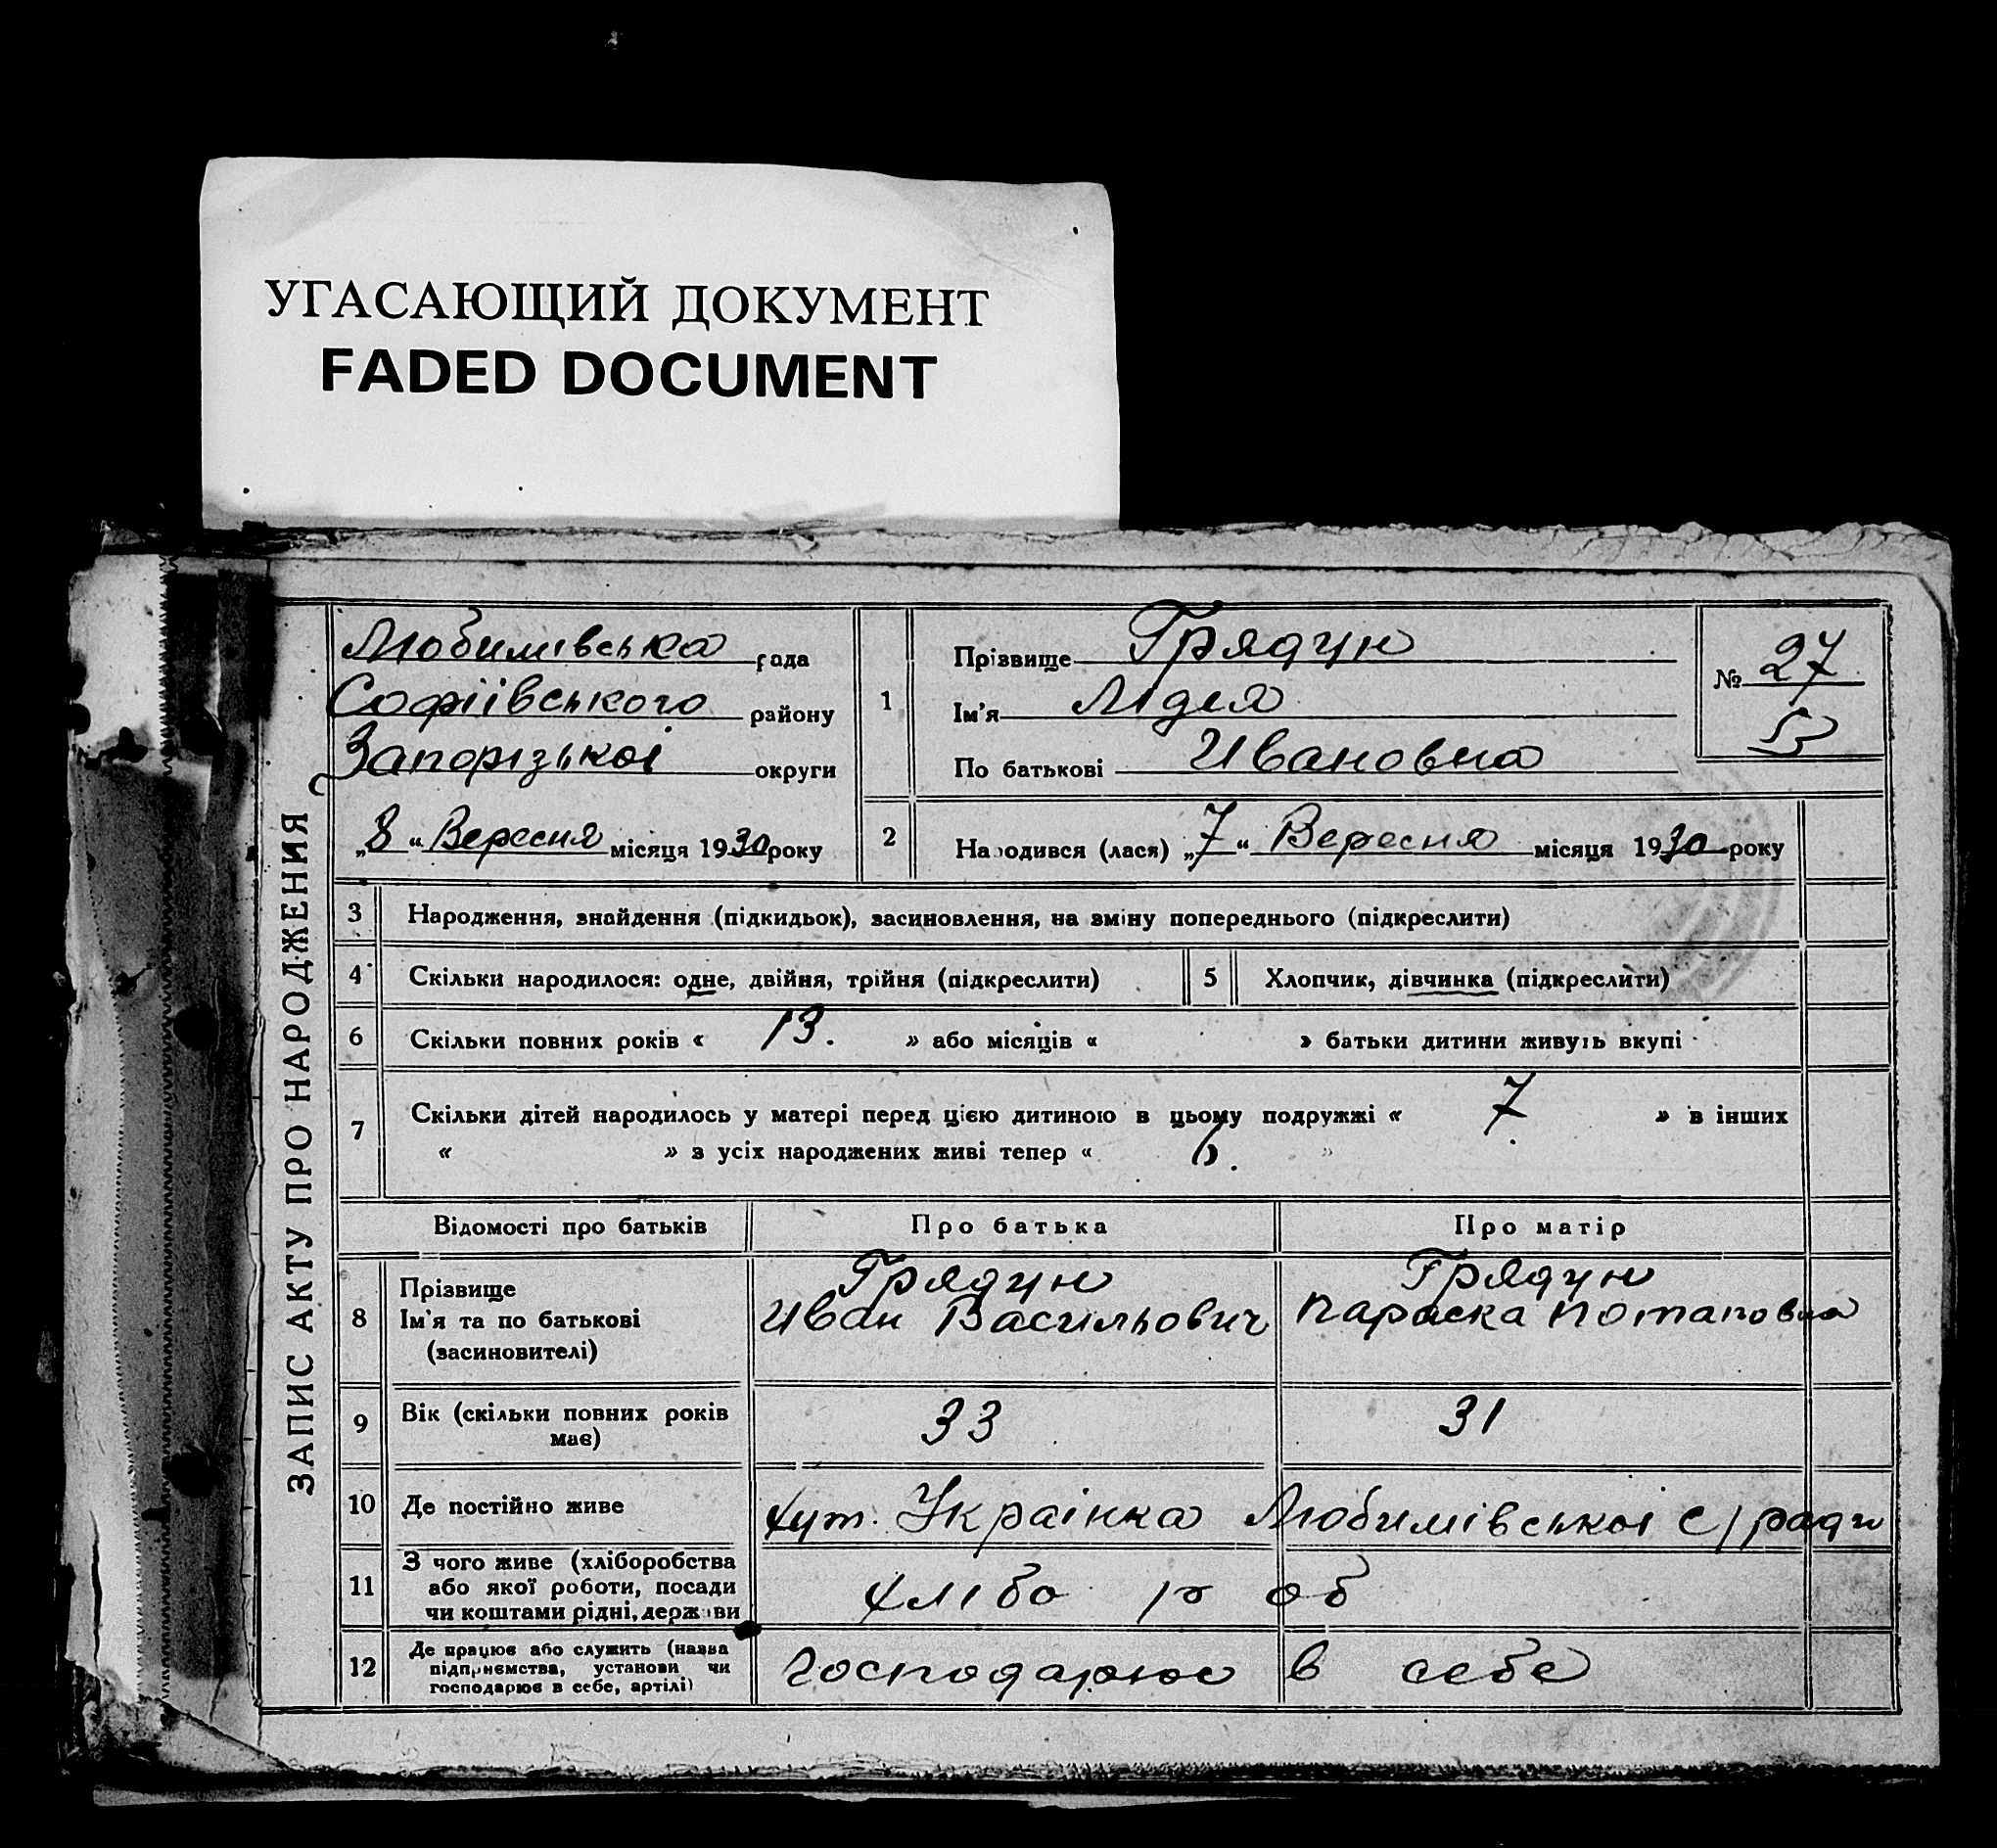 УГАСАЮЩИЙ ДОКУМЕНТ
FADED DOCUMENT
ЗАПИС АКТУ ПРО НАРОДЖЕННЯ
Любимівська рада
Софіівського району
Запорізькоі округи
„8“ Вересня місяця 1930 року
1
Прізвище Грядун
Ім'я Лідия
По батькові Ивановна
№ 27
2
Народився (лася) „7“ Вересня місяця 1930 року
3 Народження, знайдення (підкидьок), засиновлення, на зміну попереднього (підкреслити)
4 Скільки народилося: одне, двійня, трійня (підкреслити)
5 Хлопчик, дівчинка (підкреслити)
6 Скільки повних років « 13. » або місяців « » батьки дитини живуть вкупі
7 Скільки дітей народилось у матері перед цією дитиною в цьому подружжі « 7 » в інших
« » з усіх народжених живі тепер « 6. »
Відомості про батьків Про батька Про матір
8
Прізвище Грядун Грядун
Ім'я та по батькові Иван Васильович Параска Потаповна
(засиновителі)
9 Вік (скільки повних років 33 31
має)
10 Де постійно живе хут. Украінка Любимівськоі с/ради
11
З чого живе (хліборобства
або якої роботи, посади хлібо роб
чи коштами рідні, держави
12
Де працює або служить (назва
підприємства, установи чи господарює в себе
господарює в себе, артілі)